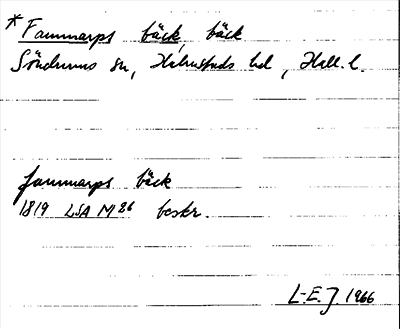 *Fammarps bäck, bäck
Söndrums sn, Halmstads hd, Hall. l.
fammarps bäck
1819 LSA M 86 beskr.
L-E. J. 1966